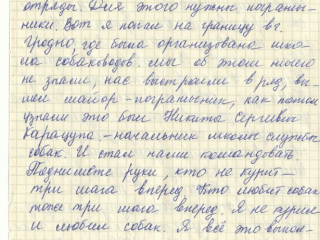 отряды. Для этого нужны погранич-
ники. Вот я попал на границу в г.
Гродно, где была организована шко-
ла собаководов. мы об этом ничего
не знали, нас выстроили в ряд, вы-
шел майор-пограничник, как потом
узнали это был Никита Сергеевич
Карацупа. - начальник школы службы
собак. И стал нами командовать.
Поднимите руки, кто не курит -
три шага вперед. Кто любит собак
тоже три шага вперед. Я не курил
и любил собак. Я всё это выпол-